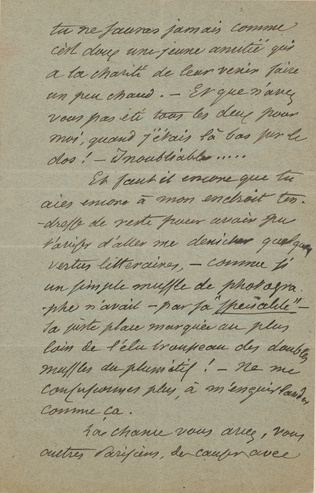 tu ne sauras jamais comme
c'est doux une jeune amitié qui
a la charité de leur venir faire
un peu chaud. — Et que n'avez
vous pas été tous les deux pour
moi, quand j'étais là bas sur le
dos ! — Inoubliable.....
Et faut il encore que tu
aies encore à mon endroit ten-
-dresse de reste pour avoir pu
d'aller me denicher quelques
vertus litteraires, — comme si
un simple muffle de photogra-
phe n'avait — par sa "specialité" —
sa juste place marquée au plus
loin de l'élu troupeau des doubles
muffles du plumitif ! — Ne me
plus, à m'enguirlander
comme ça.
La chance vous avez, vous
autres Parisiens, de causer avec